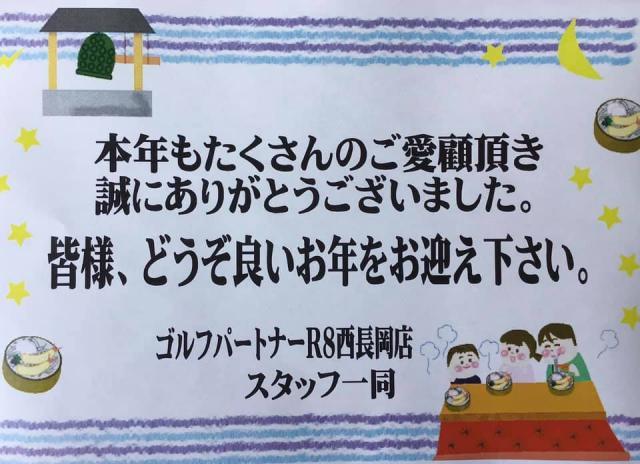 本年もたくさんのご愛顧頂き
誠にありがとうございました。
皆様、どうぞ良いお年をお迎え下さい。
ゴルフパートナーR8西長岡店
スタッフ一同